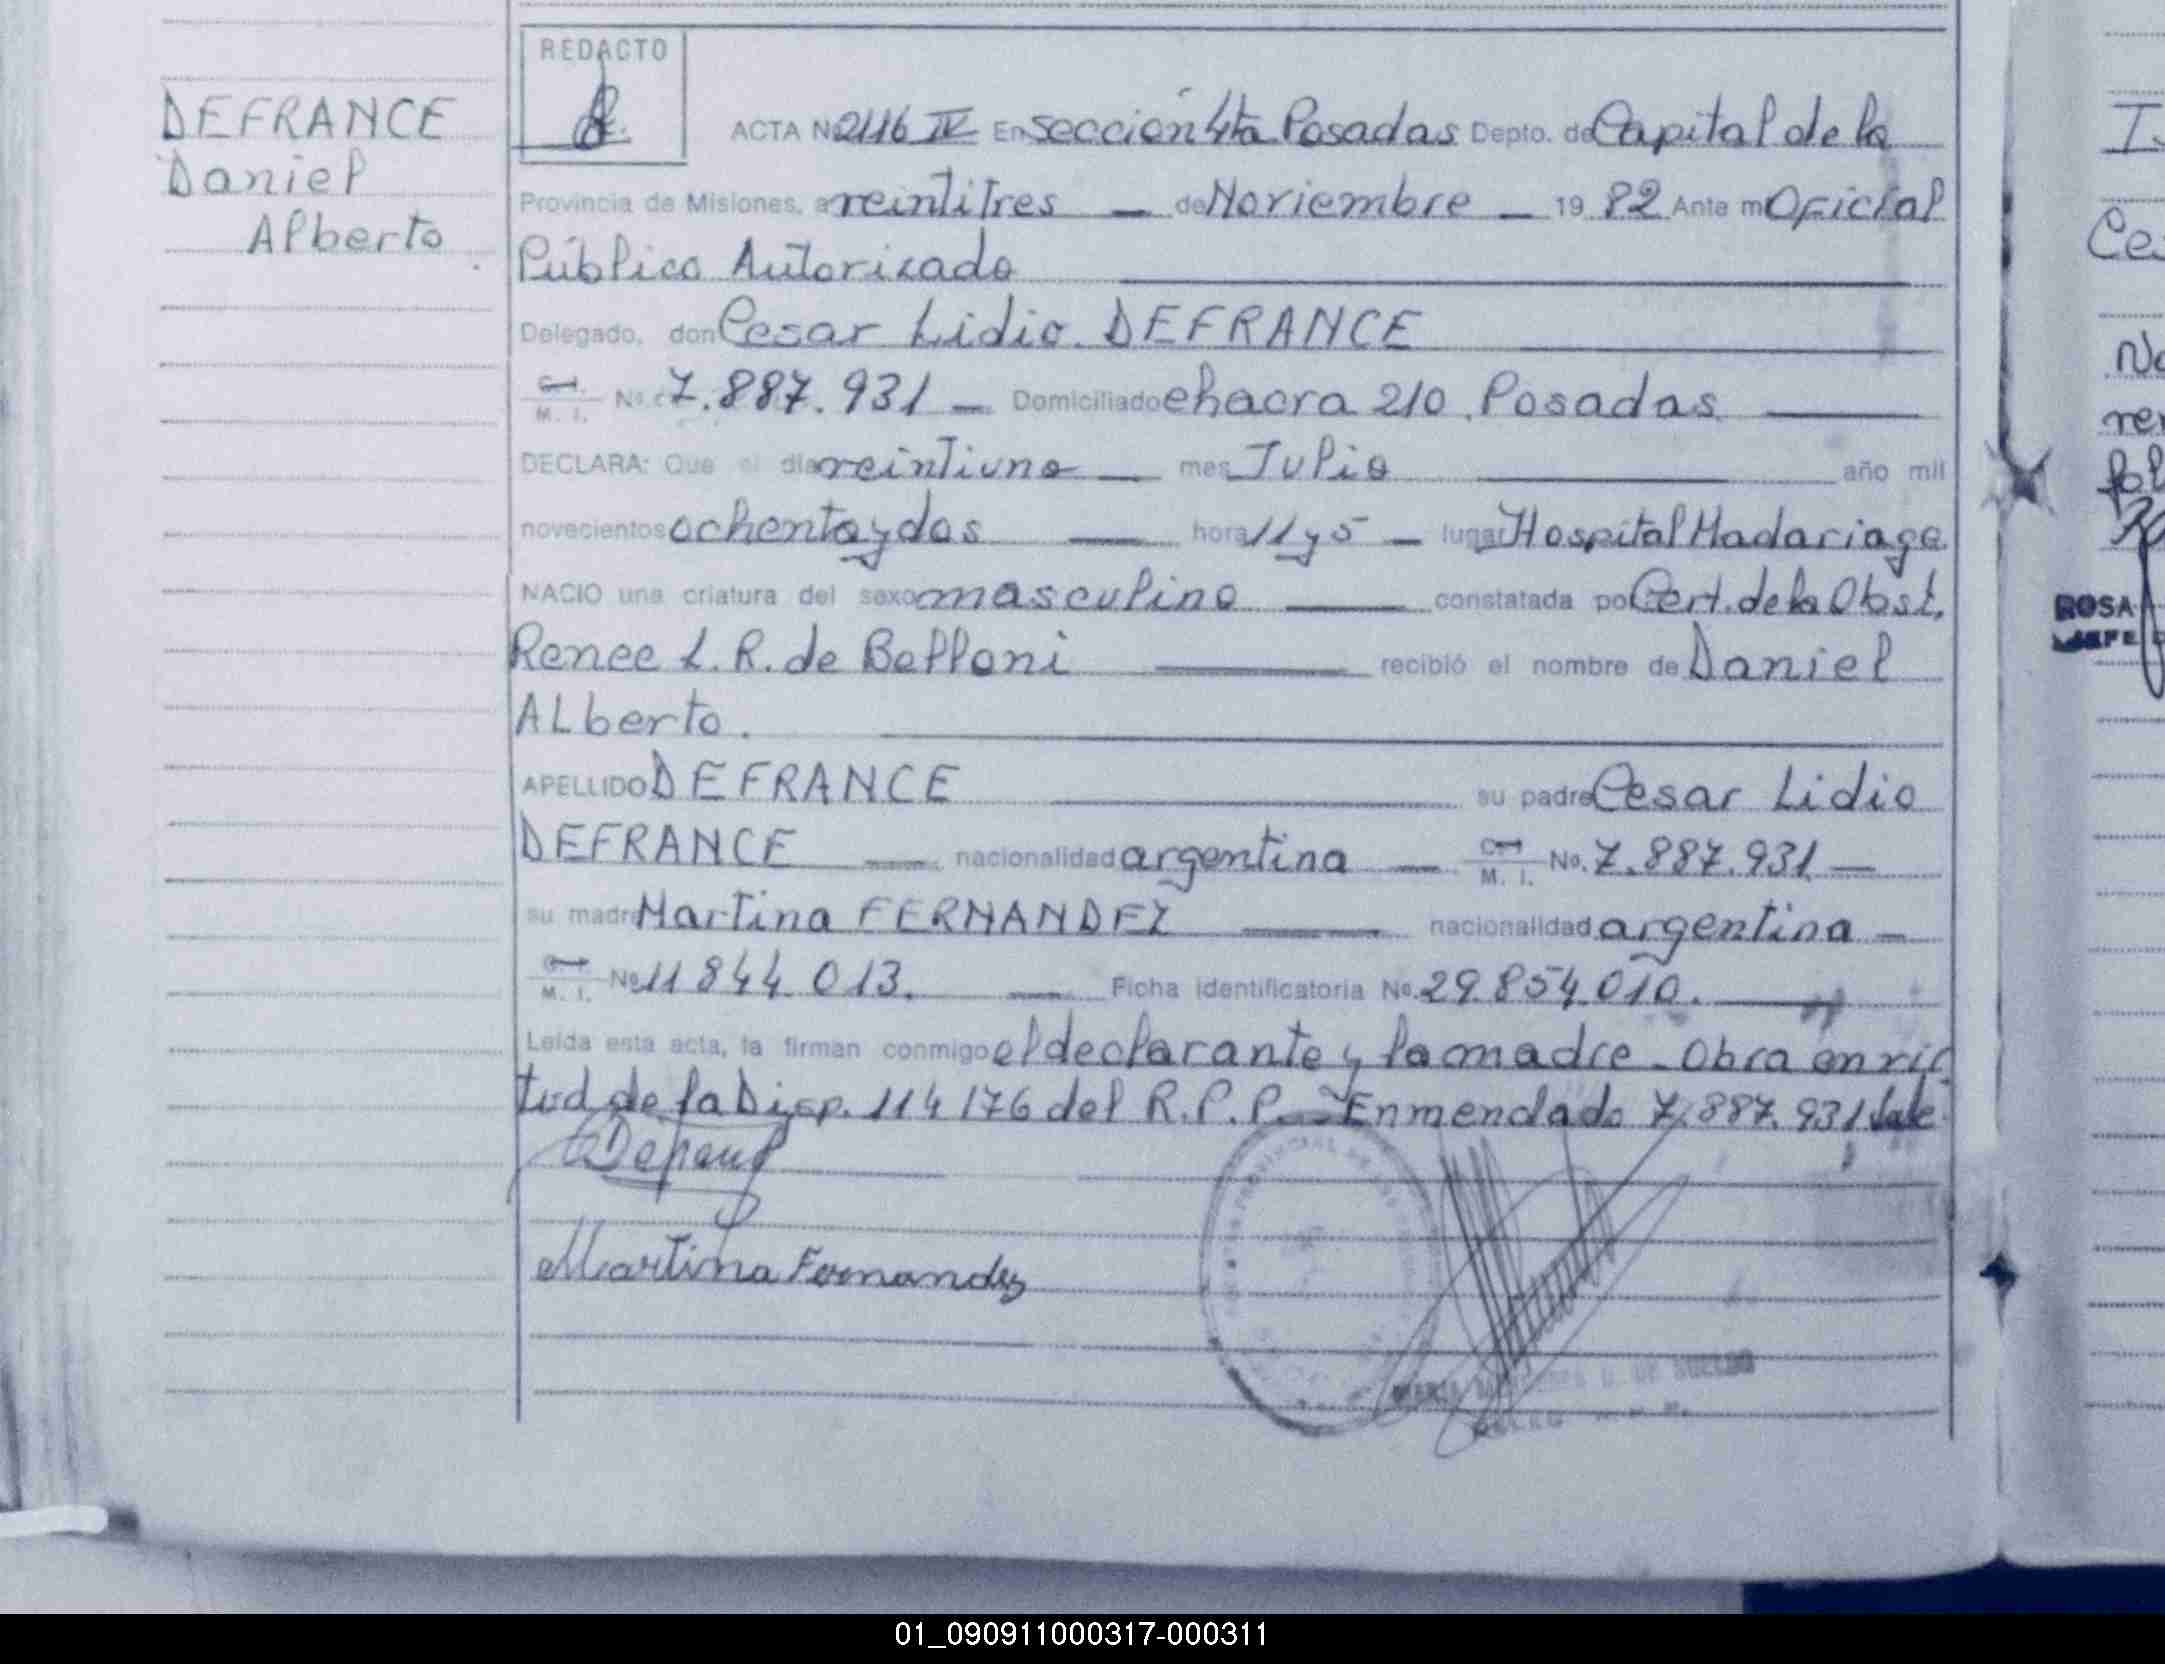 DEFRANCE
Daniel
Alberto
REDACTO
ACTA Nº 2116 IV En sección 4ta Posadas Depto. de Capital de la
Provincia de Misiones, a veintitres — de Noviembre — 19 82 Ante mi Oficial
Público Autorizado
Delegado, don Cesar Lidio. DEFRANCE
M. I. No. 7.887.931 — Domiciliado chacra 210. Posadas.
DECLARA: Que el día veintiuno — mes Julio año mil
novecientos ochenta y dos — hora 11 y 5 — lugar Hospital Madariaga
NACIO una criatura del sexo masculino — constatada por Cert. de la Obst.
Renee L. R. de Belloni — recibió el nombre de Daniel
ALberto.
APELLIDO DEFRANCE — su padre Cesar Lidio
DEFRANCE — nacionalidad argentina — M. I. No. 7.887.931 —
su madre Martina FERNANDEZ — nacionalidad argentina —
M. I. No 11 844 013. — Ficha identificatoria No. 29.854.010. —
Leída esta acta, la firman conmigo el declarante y la madre - Obra en vir
tud de la Disp. 114 176 del R.P.P. — Enmendado 7.887.931 Vale
Martina Fernandez
DE SUELDO
ROSA
JEFE
01_090911000317-000311